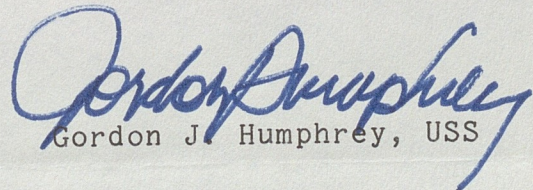 Gordon Humphrey
Gordon J. Humphrey, USS